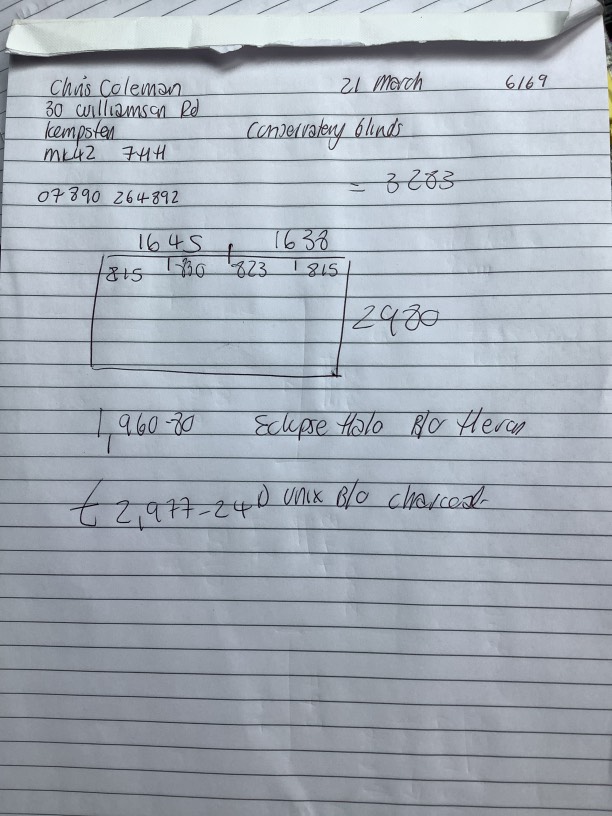 Chris Coleman 21 March 6169
30 Williamson Rd
Kempston Conservatory blinds
MK42 7HH
= 3283
07890 264892
1645 1638
815 830 823 815
2980
1,960-80 Eclipse Halo B/O Heron
£ 2,977-24 Unix B/O charcoal